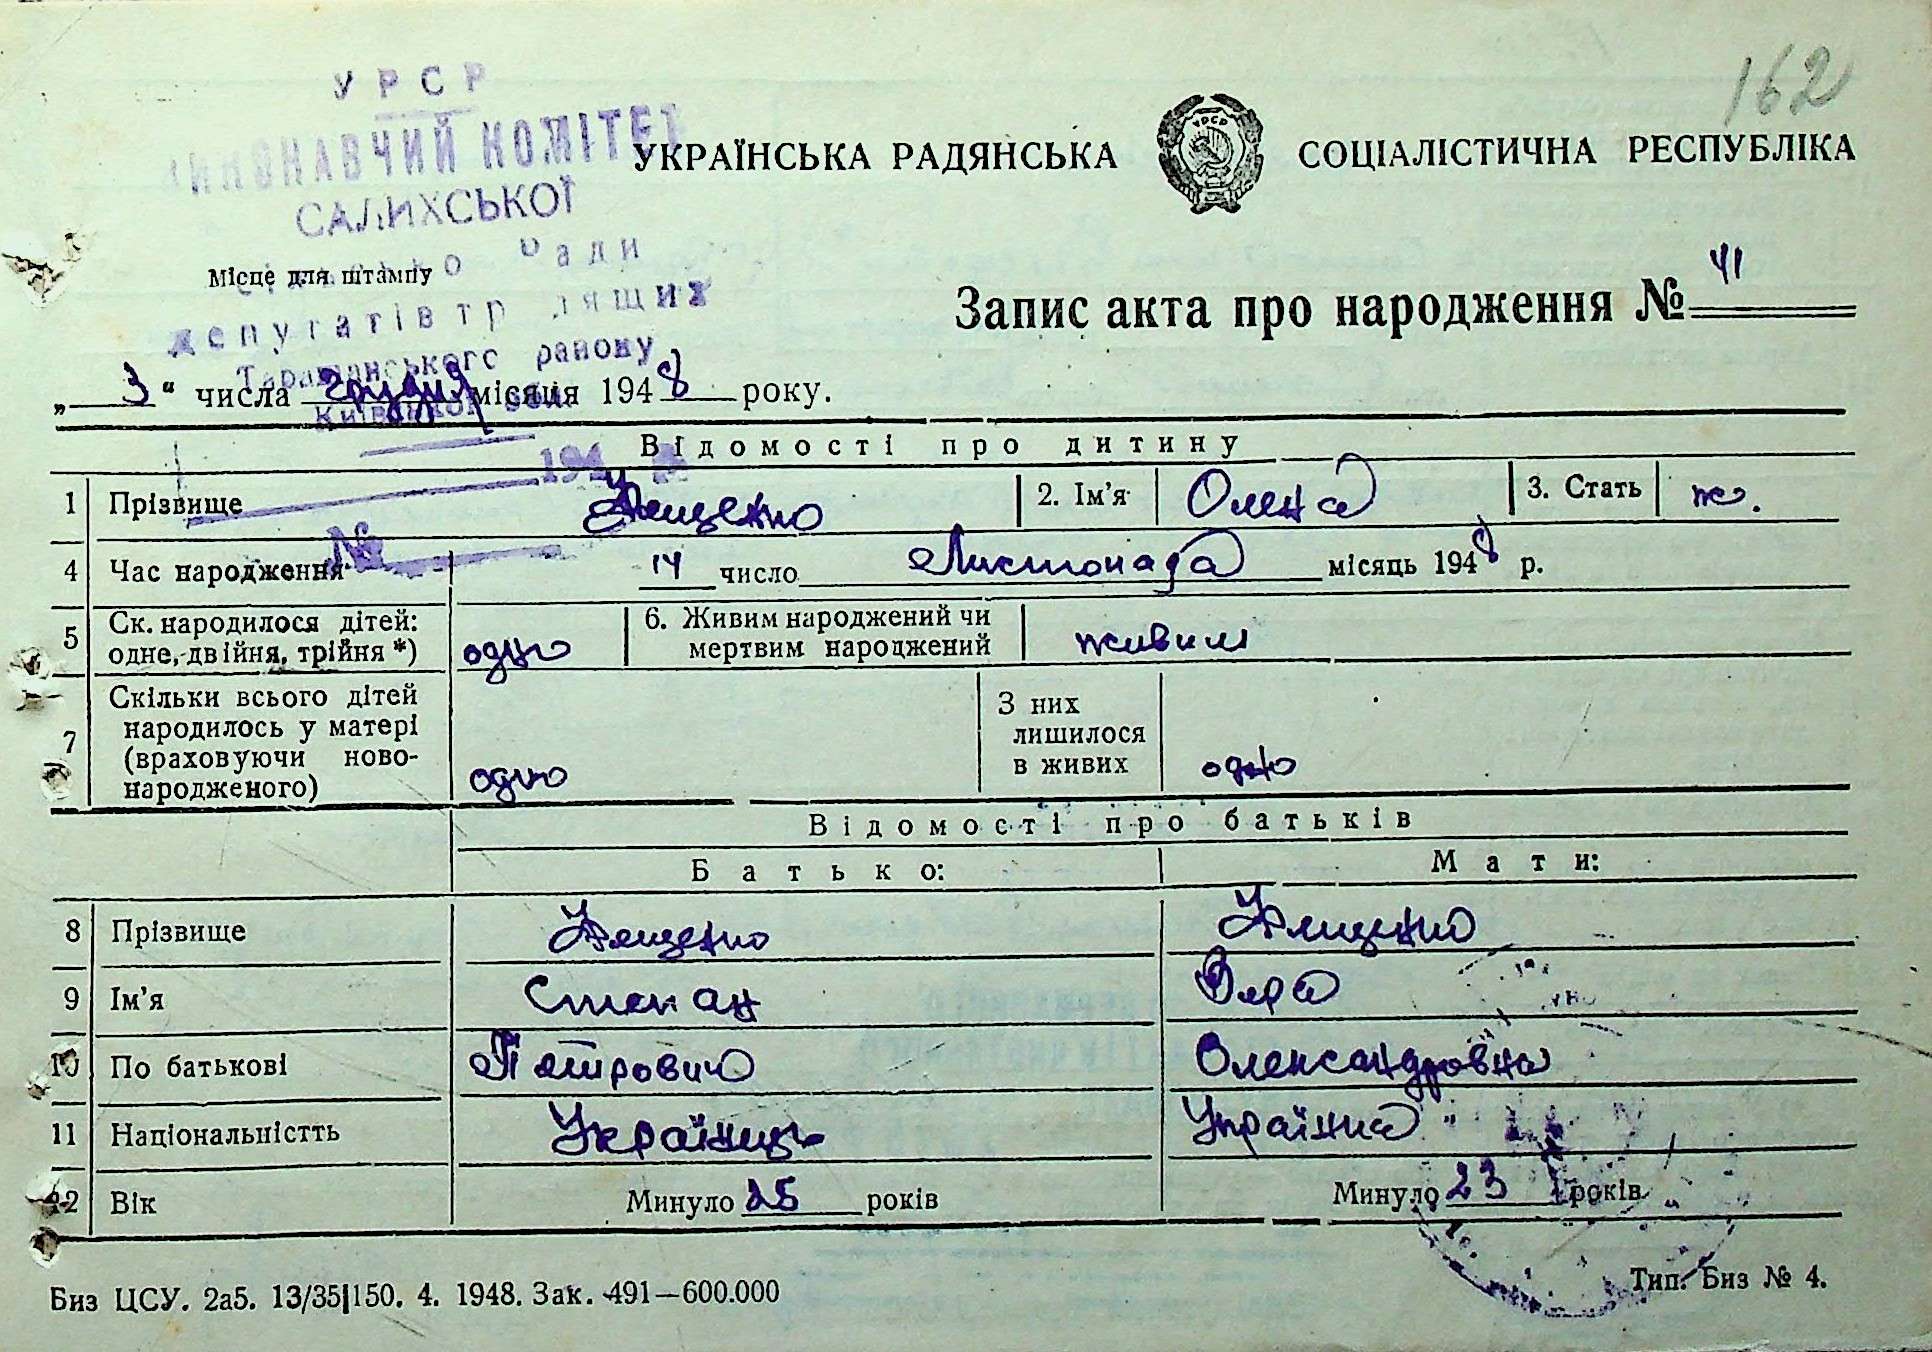 162
УРСР
ВИКОНАВЧИЙ КОМІТЕТ
УКРАЇНСЬКА РАДЯНСЬКА СОЦІАЛІСТИЧНА РЕСПУБЛІКА
САЛИХСЬКОЇ
Ради
Місце для штампу
депутатів трудящих
Запис акта про народження № 41
Таращанського району
„3“ числа грудня місяця 1948 року.
Київської обл.
Відомості про дитину
194
1 Прізвище Ященко 2. Ім'я Олена 3. Стать ж.
№
4 Час народження 14 число Листопада місяць 1948 р.
5 Ск. народилося дітей: одно 6. Живим народжений чи живим
одне, двійня, трійня *) мертвим народжений
7 Скільки всього дітей З них
народилось у матері лишилося
(враховуючи ново- в живих одно
народженого) одно
Відомості про батьків
Батько: Мати:
8 Прізвище Ященко Ященко
9 Ім'я Степан Віра
10 По батькові Петрович Олександровна
11 Національністть Українць Українка
12 Вік Минуло 25 років Минуло 23 років
Биз ЦСУ. 2а5. 13/35|150. 4. 1948. Зак. 491—600.000 Тип. Биз № 4.